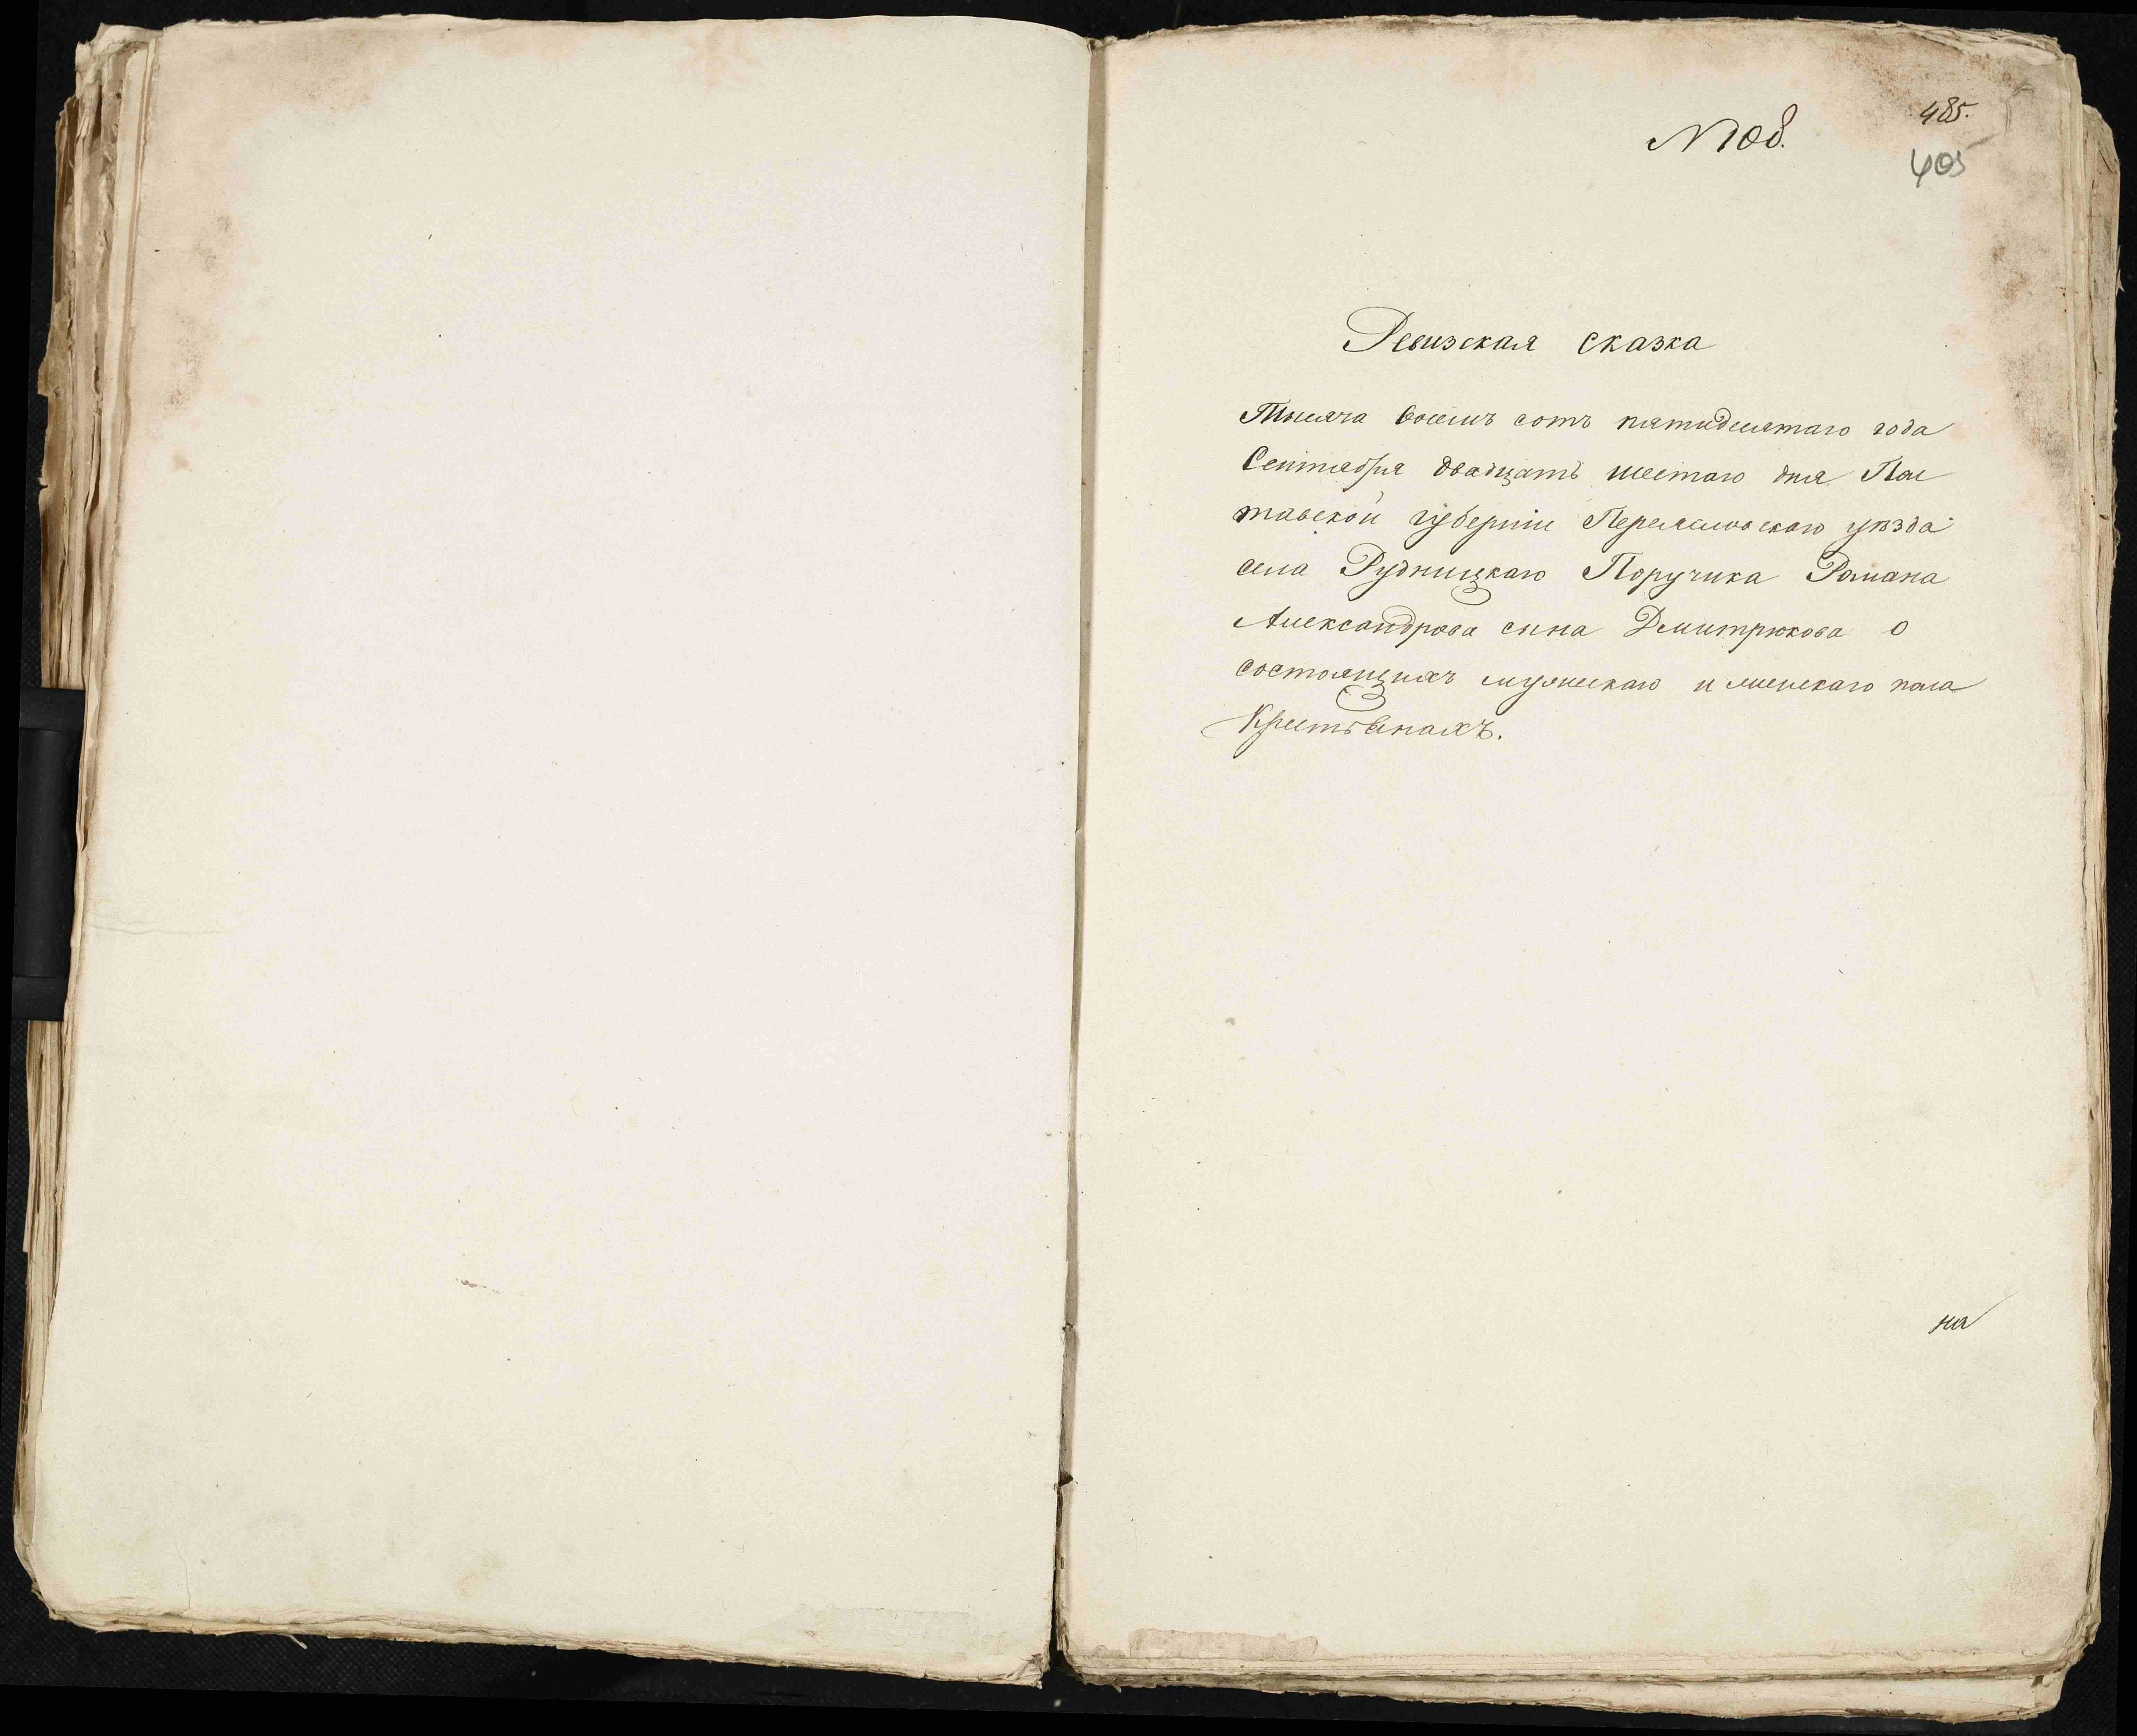 485.
N 108.
405
Ревизская сказка
Тысяча восемъ сотъ пятидесятаго года
Сентября двадцать шестаго дня Пол
тавской губерніи Переяславскаго уѣзда
села Рудницкаго Поручика Романа
Александрова сына Дмитрюкова о
состоящихъ мужескаго и женскаго пола
Крестьянахъ.
на